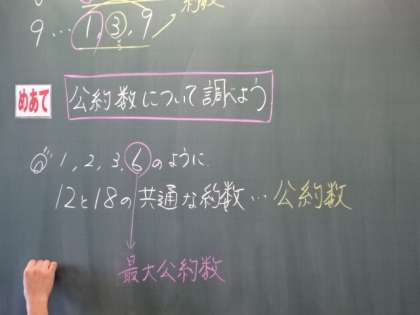 約数
9 … 1, 3, 9
めあて 公約数について調べよう
1, 2, 3, 6 のように
12と18の共通な約数… 公約数
最大公約数